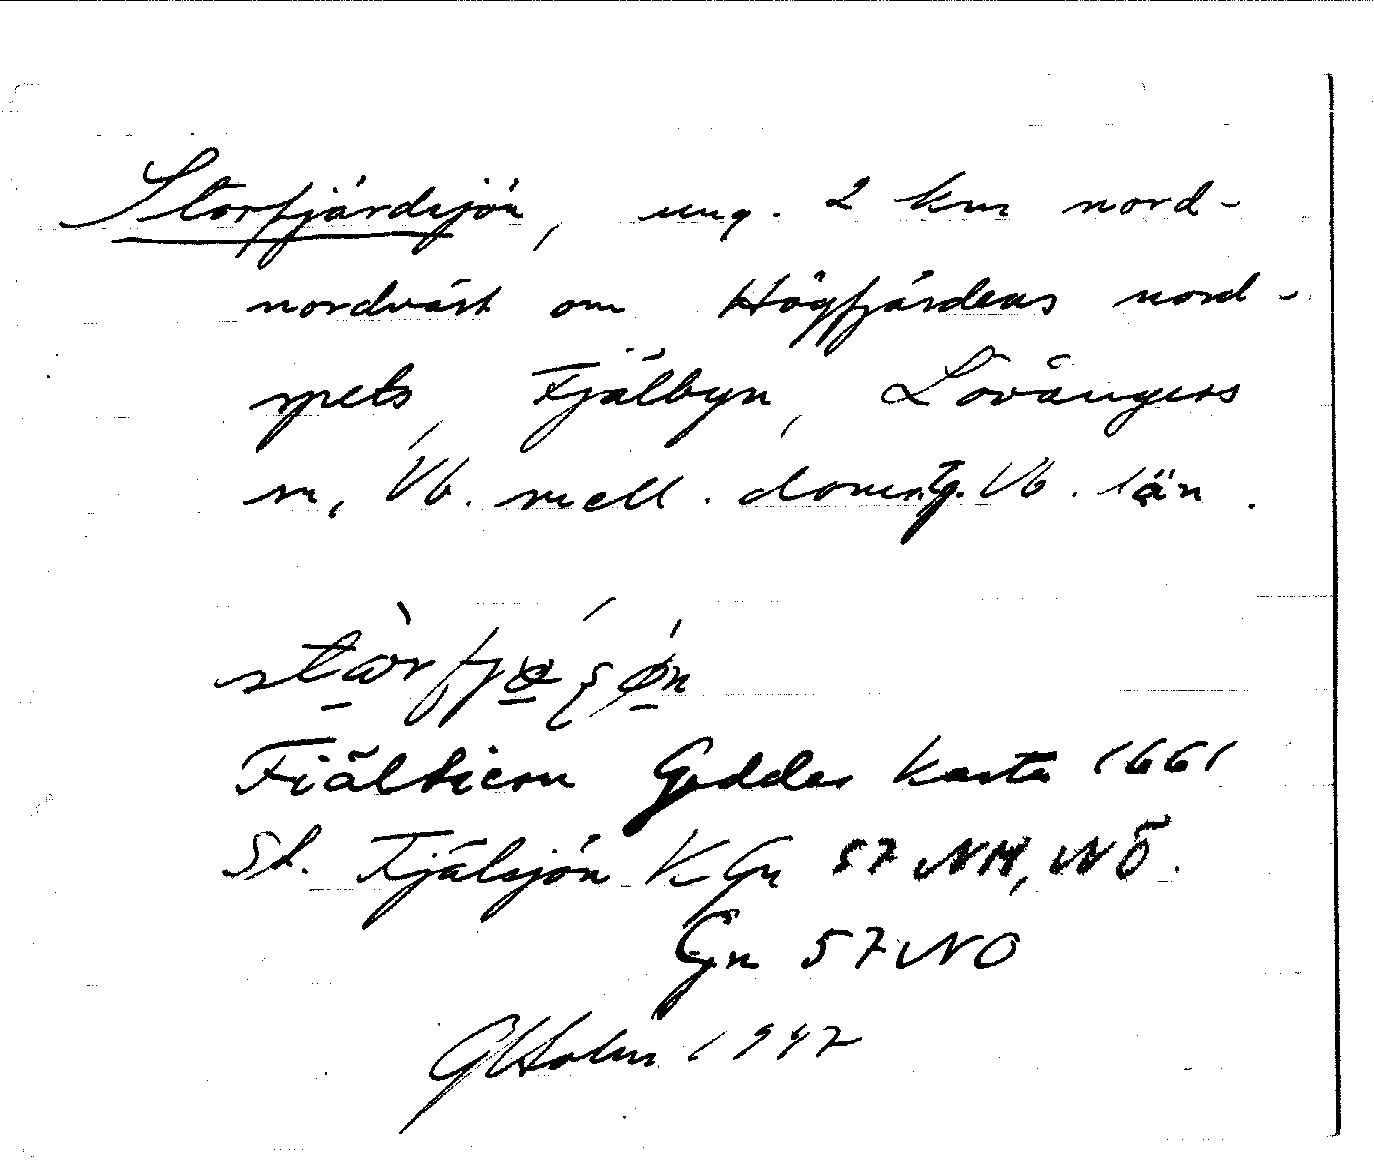 Storfjärdsjön, ung. 2 km nord-
nordväst om Högfjärdens nord-
spets, Fjälbyn, Lövångers
sn, Vb. mell. domsg. Vb. län.
Fiälbieru Geddas karta 1661
St. Fjälsjön K Gn 57 NM, NÖ.
Gn 57 NO
GHolm 1947